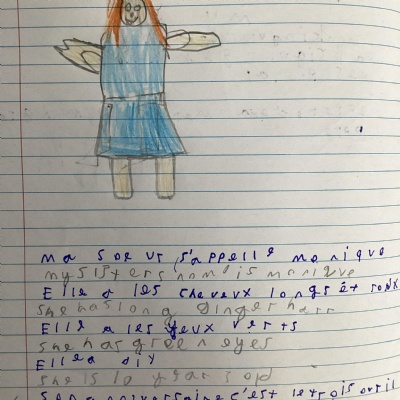 ma soeur s'appelle monique
my sisters name is monique
Elle a les cheveux longs et roux
she has long ginger hair
Elle a les yeux verts
she has green eyes
Elle a dix
she is 10 years old
son anniversaire c'est le trois avril